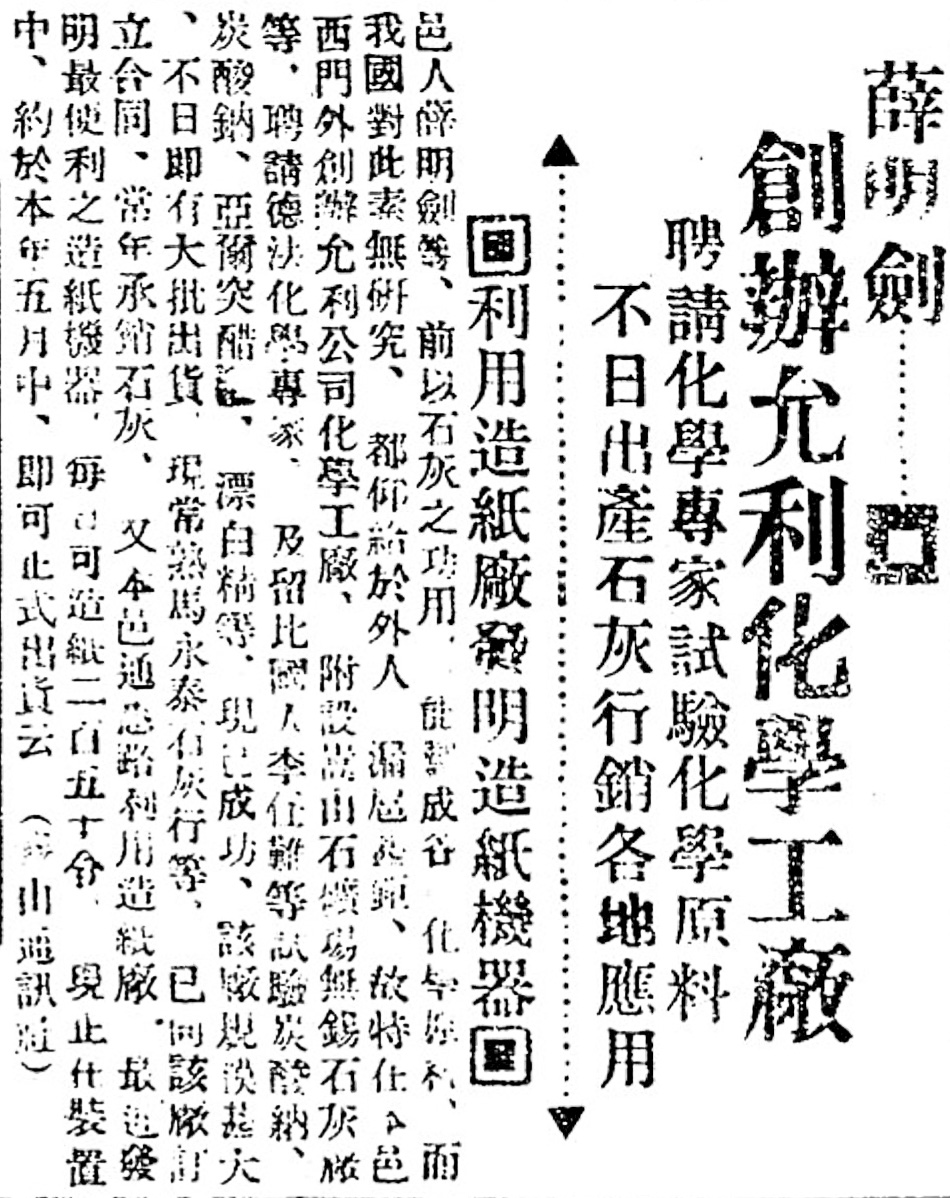 薛明劍
創辦允利化學工廠
聘請化學專家試驗化學原料
不日出產石灰行銷各地應用
利用造紙廠發明造紙機器
邑人薛明劍等、前以石灰之功用、能製成各 化學原料、而
我國對此素無研究、都仰給於外人 漏巵甚鉅、故特在本邑
西門外創辦允利公司化學工廠、附設 山石礦場無錫石灰廠
等、聘請德法化學專家、及留比國人李任難等試驗炭酸納、
炭酸鈉、亞爾突酷 、漂白精等、現已成功、該廠規模甚大
、不日即有大批出貨、現常熟馬永泰石灰行等、已向該廠訂
立合同、常年承銷石灰、又本邑通惠路利用造紙廠、最近發
明最便利之造紙機器、每日可造紙二百五十令、現正在裝置
中、約於本年五月中、即可正式出貨云（ 山通訊社）